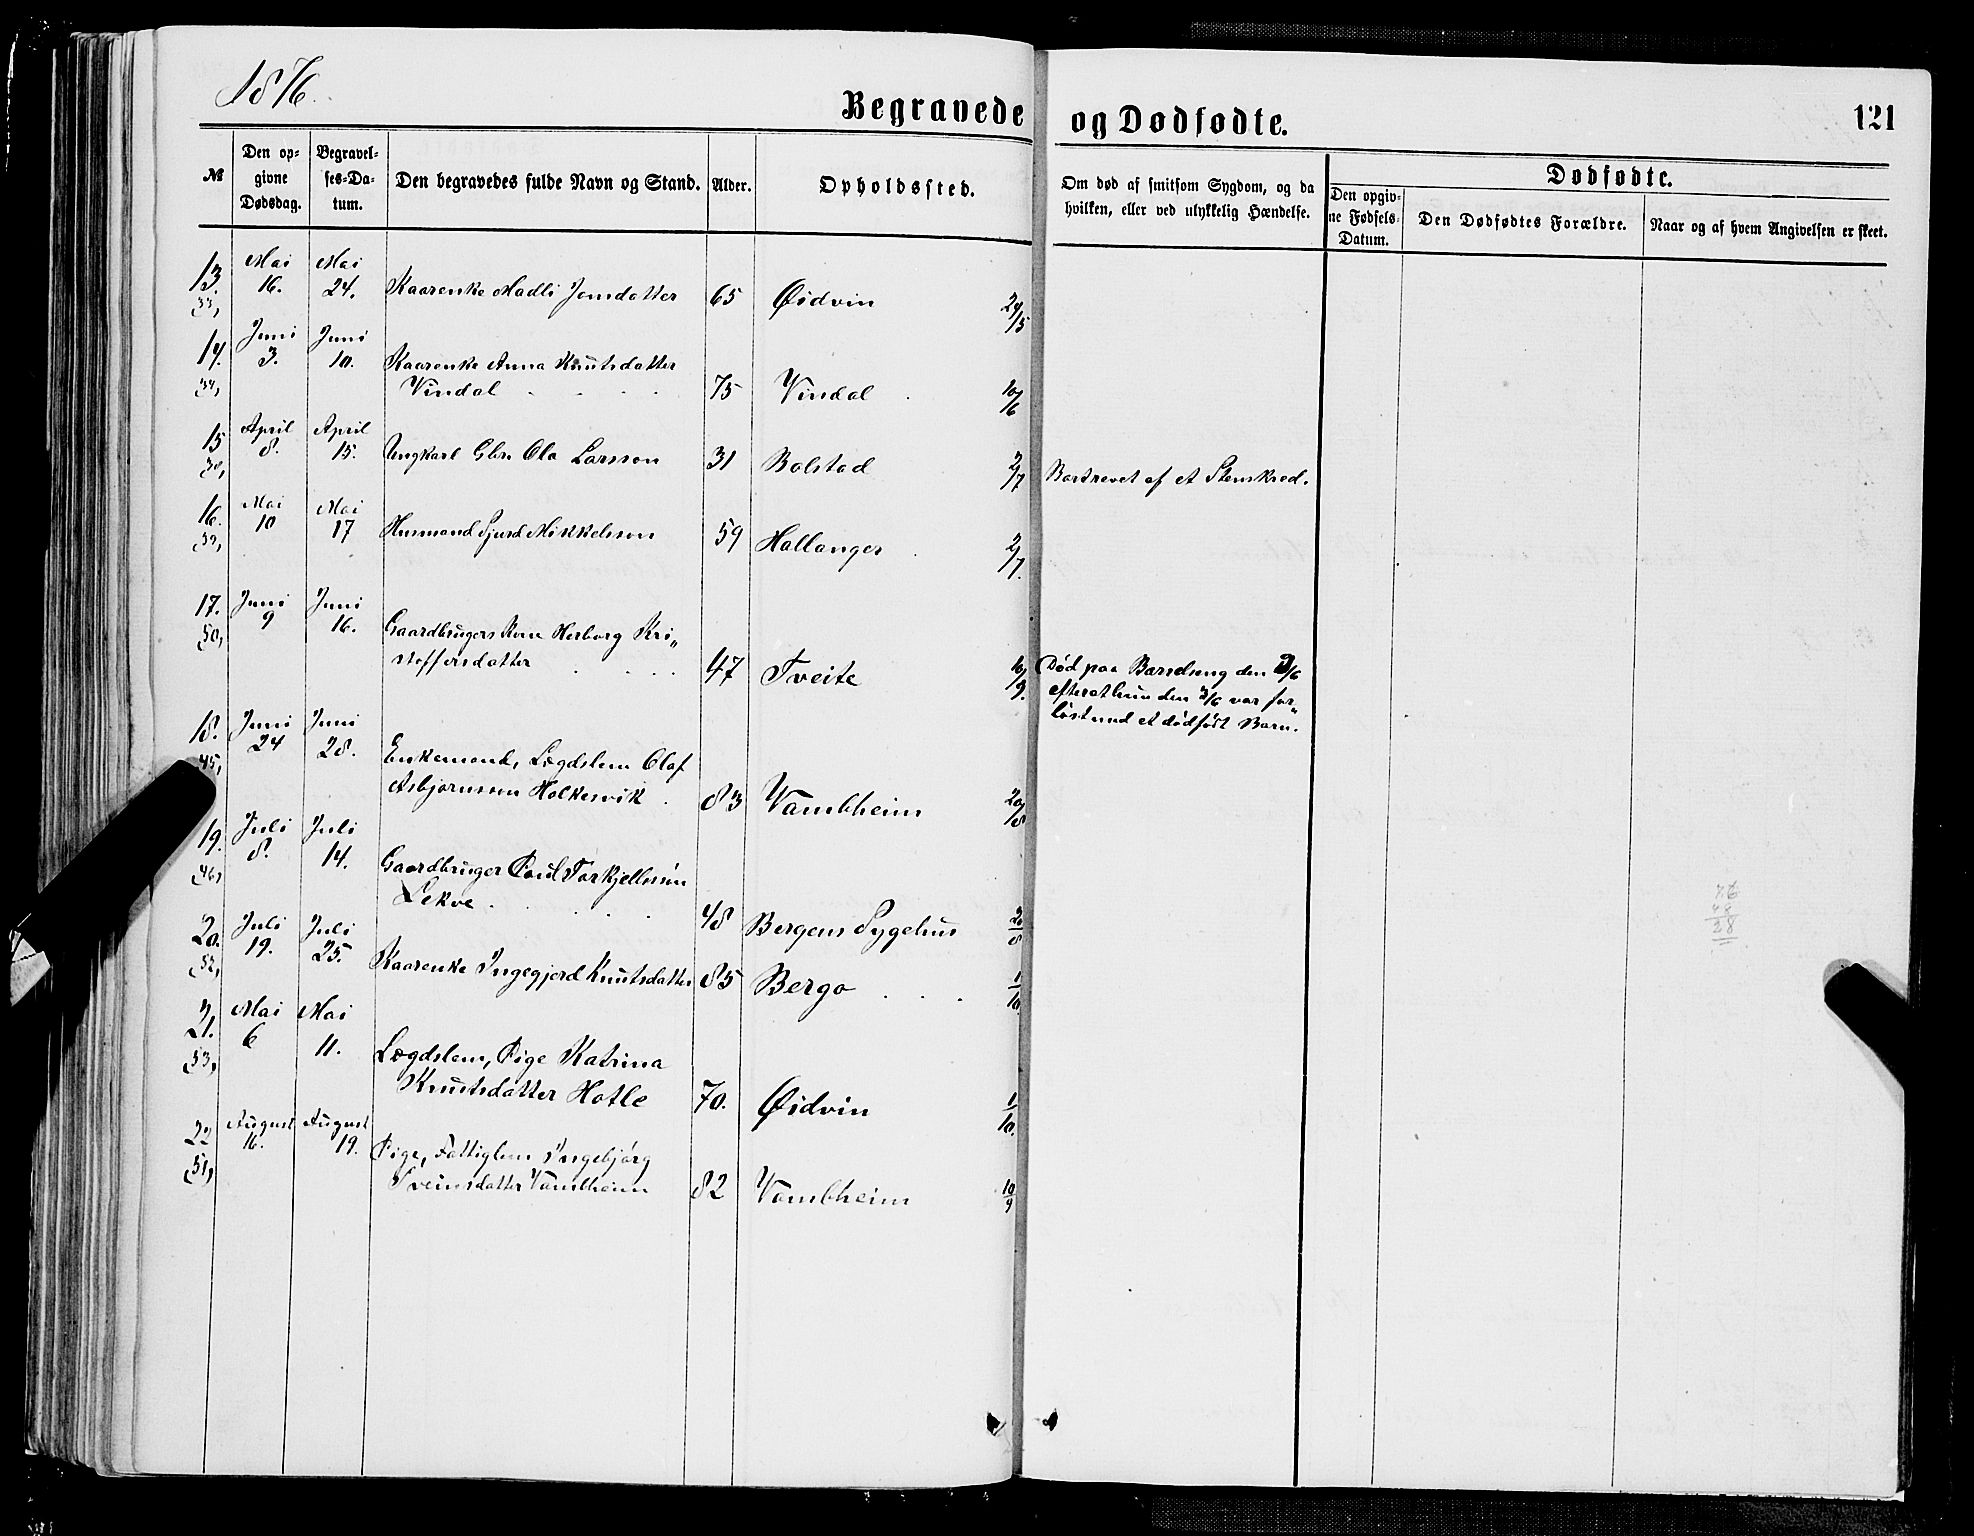 1876.
Begravede og Dødfødte.
121
№
Den opgivne Dødsdag.
Begravelses-Datum.
Den begravedes fulde Navn og Stand.
Alder.
Opholdssted.
Om død af smitsom Sygdom, og da hvilken, eller ved ulykkelig Hændelse.
Dødfødte.
Den opgivne Fødsels-Datum.
Den Dødfødtes Forældre.
Naar og af hvem Angivelsen er skeet.
13. Mai 16. Mai 24. Kaarenke Madli Jonsdatter 65 Øidvin 24/5
33,
14. Juni 3. Juni 10. Kaarenke Anna Knutsdatter
Vindal 75 Vindal 10/6
34,
15 April 8. April 15. Ungkarl Gbr. Ola Larsson 31 Bolstad 2/7 Bortrevet af et Stenskred.
38,
16. Mai 10 Mai 17 Husmand Sjurd Mikkelsson 59 Hallanger 2/7.
39,
17. Juni 9 Juni 16. Gaardbrugers Kone Herborg Kri„
stoffersdatter 47 Tveite 16/9.
50,
Død paa Barselseng den 9/6
efterat hun den 3/6 var for„
løst med et dødfødt Barn.
18. Juni 24 Juni 28. Enkemand, Lægdslem Olaf
Asbjørnsson Holkesvik 83 Vambheim 20/8
45,
19. Juli 8. Juli 14. Gaardbruger Poul Torkjellssøn
Lekve 48 Bergens Sygehus 20/8
46,
20. Juli 19. Juli 25. Kaarenke Ingegjerd Knutsdatter 85 Bergo 1/10.
52,
21. Mai 6 Mai 11. Lægdslem, Pige Katrina
Knutsdatter Hotle 70. Øidvin 1/10.
53,
22 August 16. August 19. Pige, Fattiglem Ingebjørg
Sveinsdatter Vambheim 82 Vambheim 10/9
51,
28